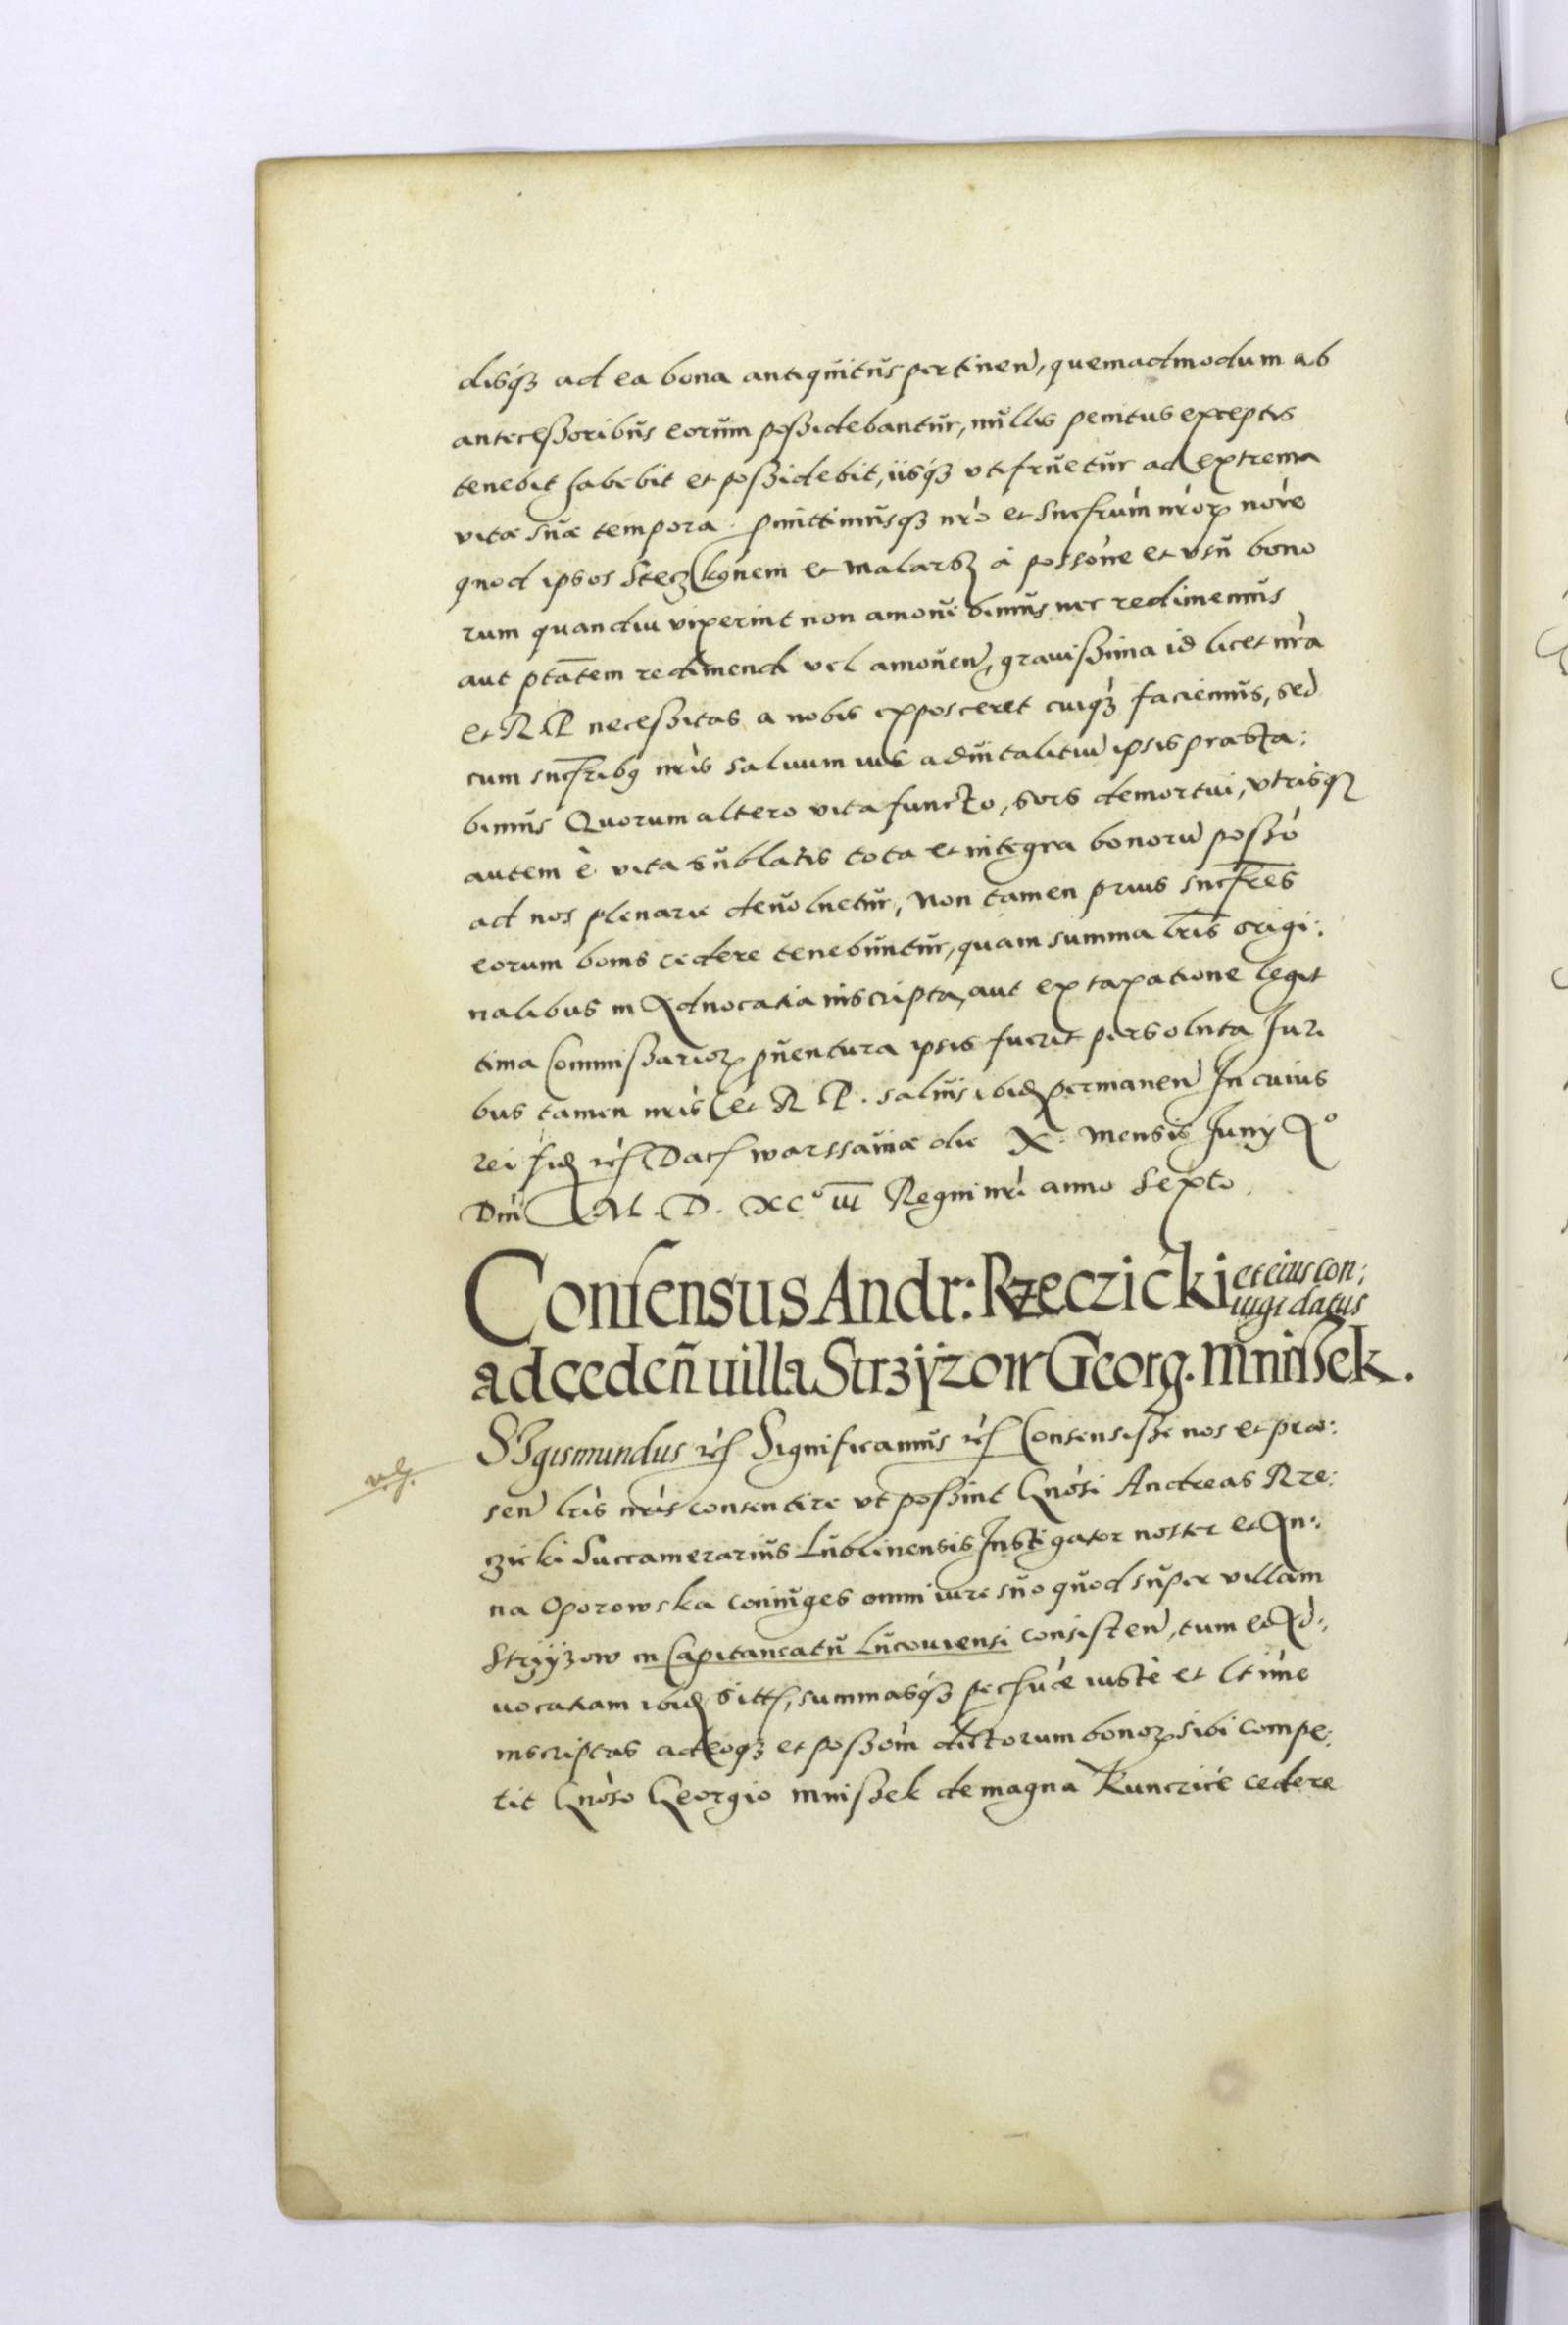 disq́ꝫ ad ea bona antiquitus pertinen̄, quemadmodum ab
antecessoribus eorum possidebantur, nullis penitus exceptis
tenebit habebit et possidebit, iisq́ꝫ utifruetur ad extrema
vitæ suæ tempora. pmittimusqꝫ nr̀o et Sucſrum nr̀oꝝ nõie
quod ipsos Stecꝫkonem et Malarsꝫ à possõne et usu bono
rum quandiu vixerint non amovebimus nec redimemus
aut ptātem redimendi vel amoven̄, gravissima id licet nr̀a
et R P necessitas a nobis exposceret cuiq́ꝫ faciemus, sed
cum sucſribꝯ nr̀is salvum ius advitalitiū ipsis præsta:
bimus Quorum altero vita functo, sors demortui, utrisqꝫ
autem è vita sublatis tota et integra bonorū possõ
ad nos plenarie devolvetur, Non tamen prius sucſres
eorum bonis cedere tenebuntur, quam summa lr̄is origi:
nalibus in Advocatia inscripta, aut ex taxatione legit
tima Commissarioꝝ pñentura ipsis fuerit persoluta Juri
bus tamen nr̀is et R P. salvis ibidꝫ permanen̄ In cuius
rei fidꝫ rc̀ſ Datſ Warssaviæ die X. Mensis Junij Aº
Dn̄i M. D. XCº III Regni nr̀i anno Septo.
Consensus Andr: Rzeczicki et eius con:
iugi datus
ad cedeñ villa Strzÿzow Georg. Mnissek.
SIgismundus rc̀ſ Significamus rc̀ſ Consensisse nos et præ:
vꝭ.
sen̄ lr̀is nr̀is consentire ut possint Gnõsi Andreas Rze:
czicki Succamerarius Lublinensis Instigator noster et An:
na Oporowska coniuges omni iure suo quod super villam
Strzÿzow in Capitaneatu Lucoviensi consisten̄, tum et Ad:
vocatiam ibidꝫ sittſ, summasq́ꝫ pecſuáe iuste et ltime
inscriptas adeoqꝫ et possom̄ dictorum bonoꝝ sibi compe:
tit Gnõso Georgio Mnissek de magna Kunczicé cedere